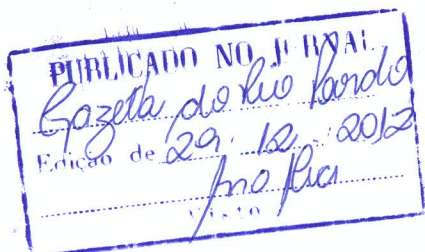 PUBLICADO NO JORNAL
Gazeta do Rio Pardo
Edição de 29. 12. 2012
VISTO